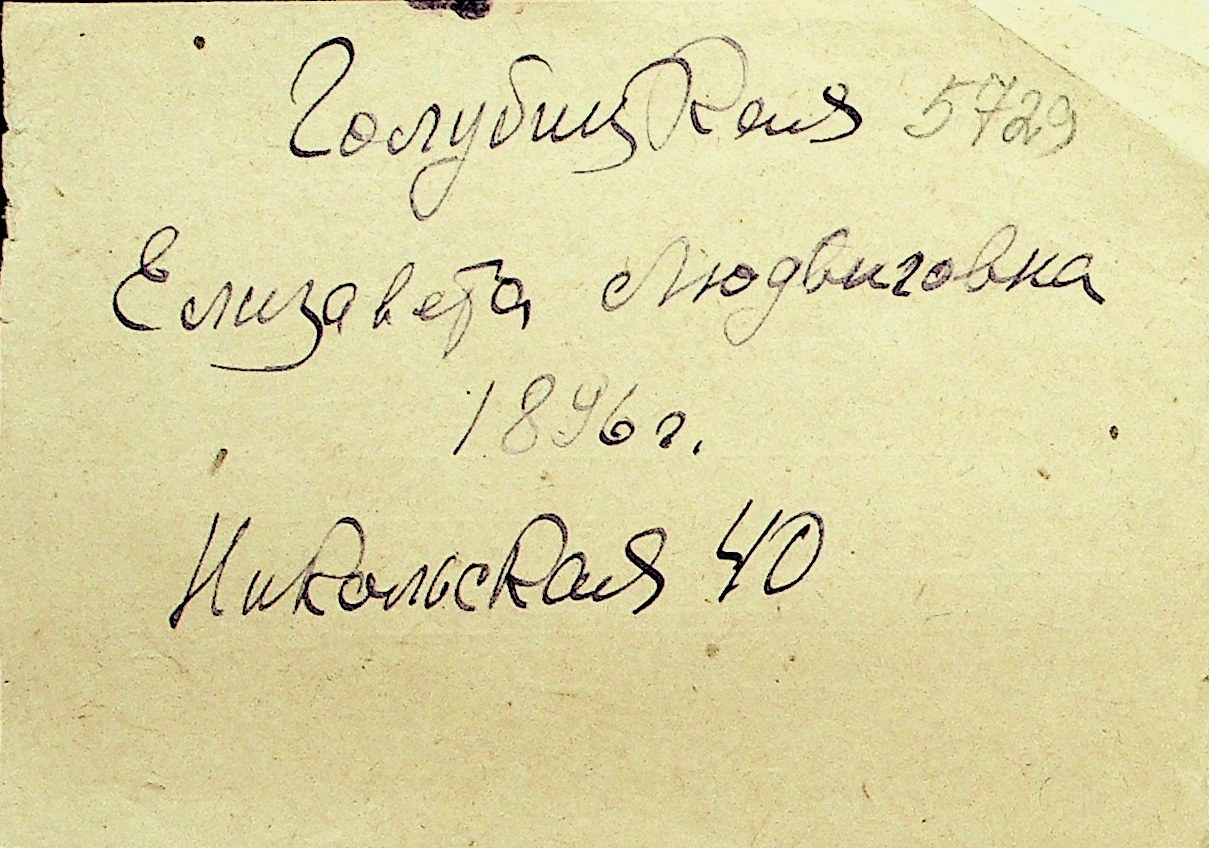 Голубицкая 5729
Елизавета Людвиговна
1896 г.
Никольская 40